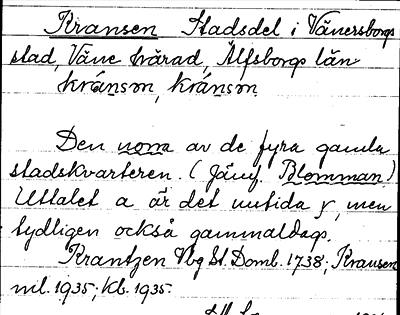 Kransen Stadsdel i Vänersborgs
stad, Väne härad, Älfsborgs län
kránsən, kránsən
Den norra av de fyra gamla
stadskvarteren. (Jämf. Blomman)
Uttalet a är det nutida, men
tydligen också gammaldags.
Krantzen Vbg St. Domb. 1738; Kransen
ml. 1935; kb. 1935